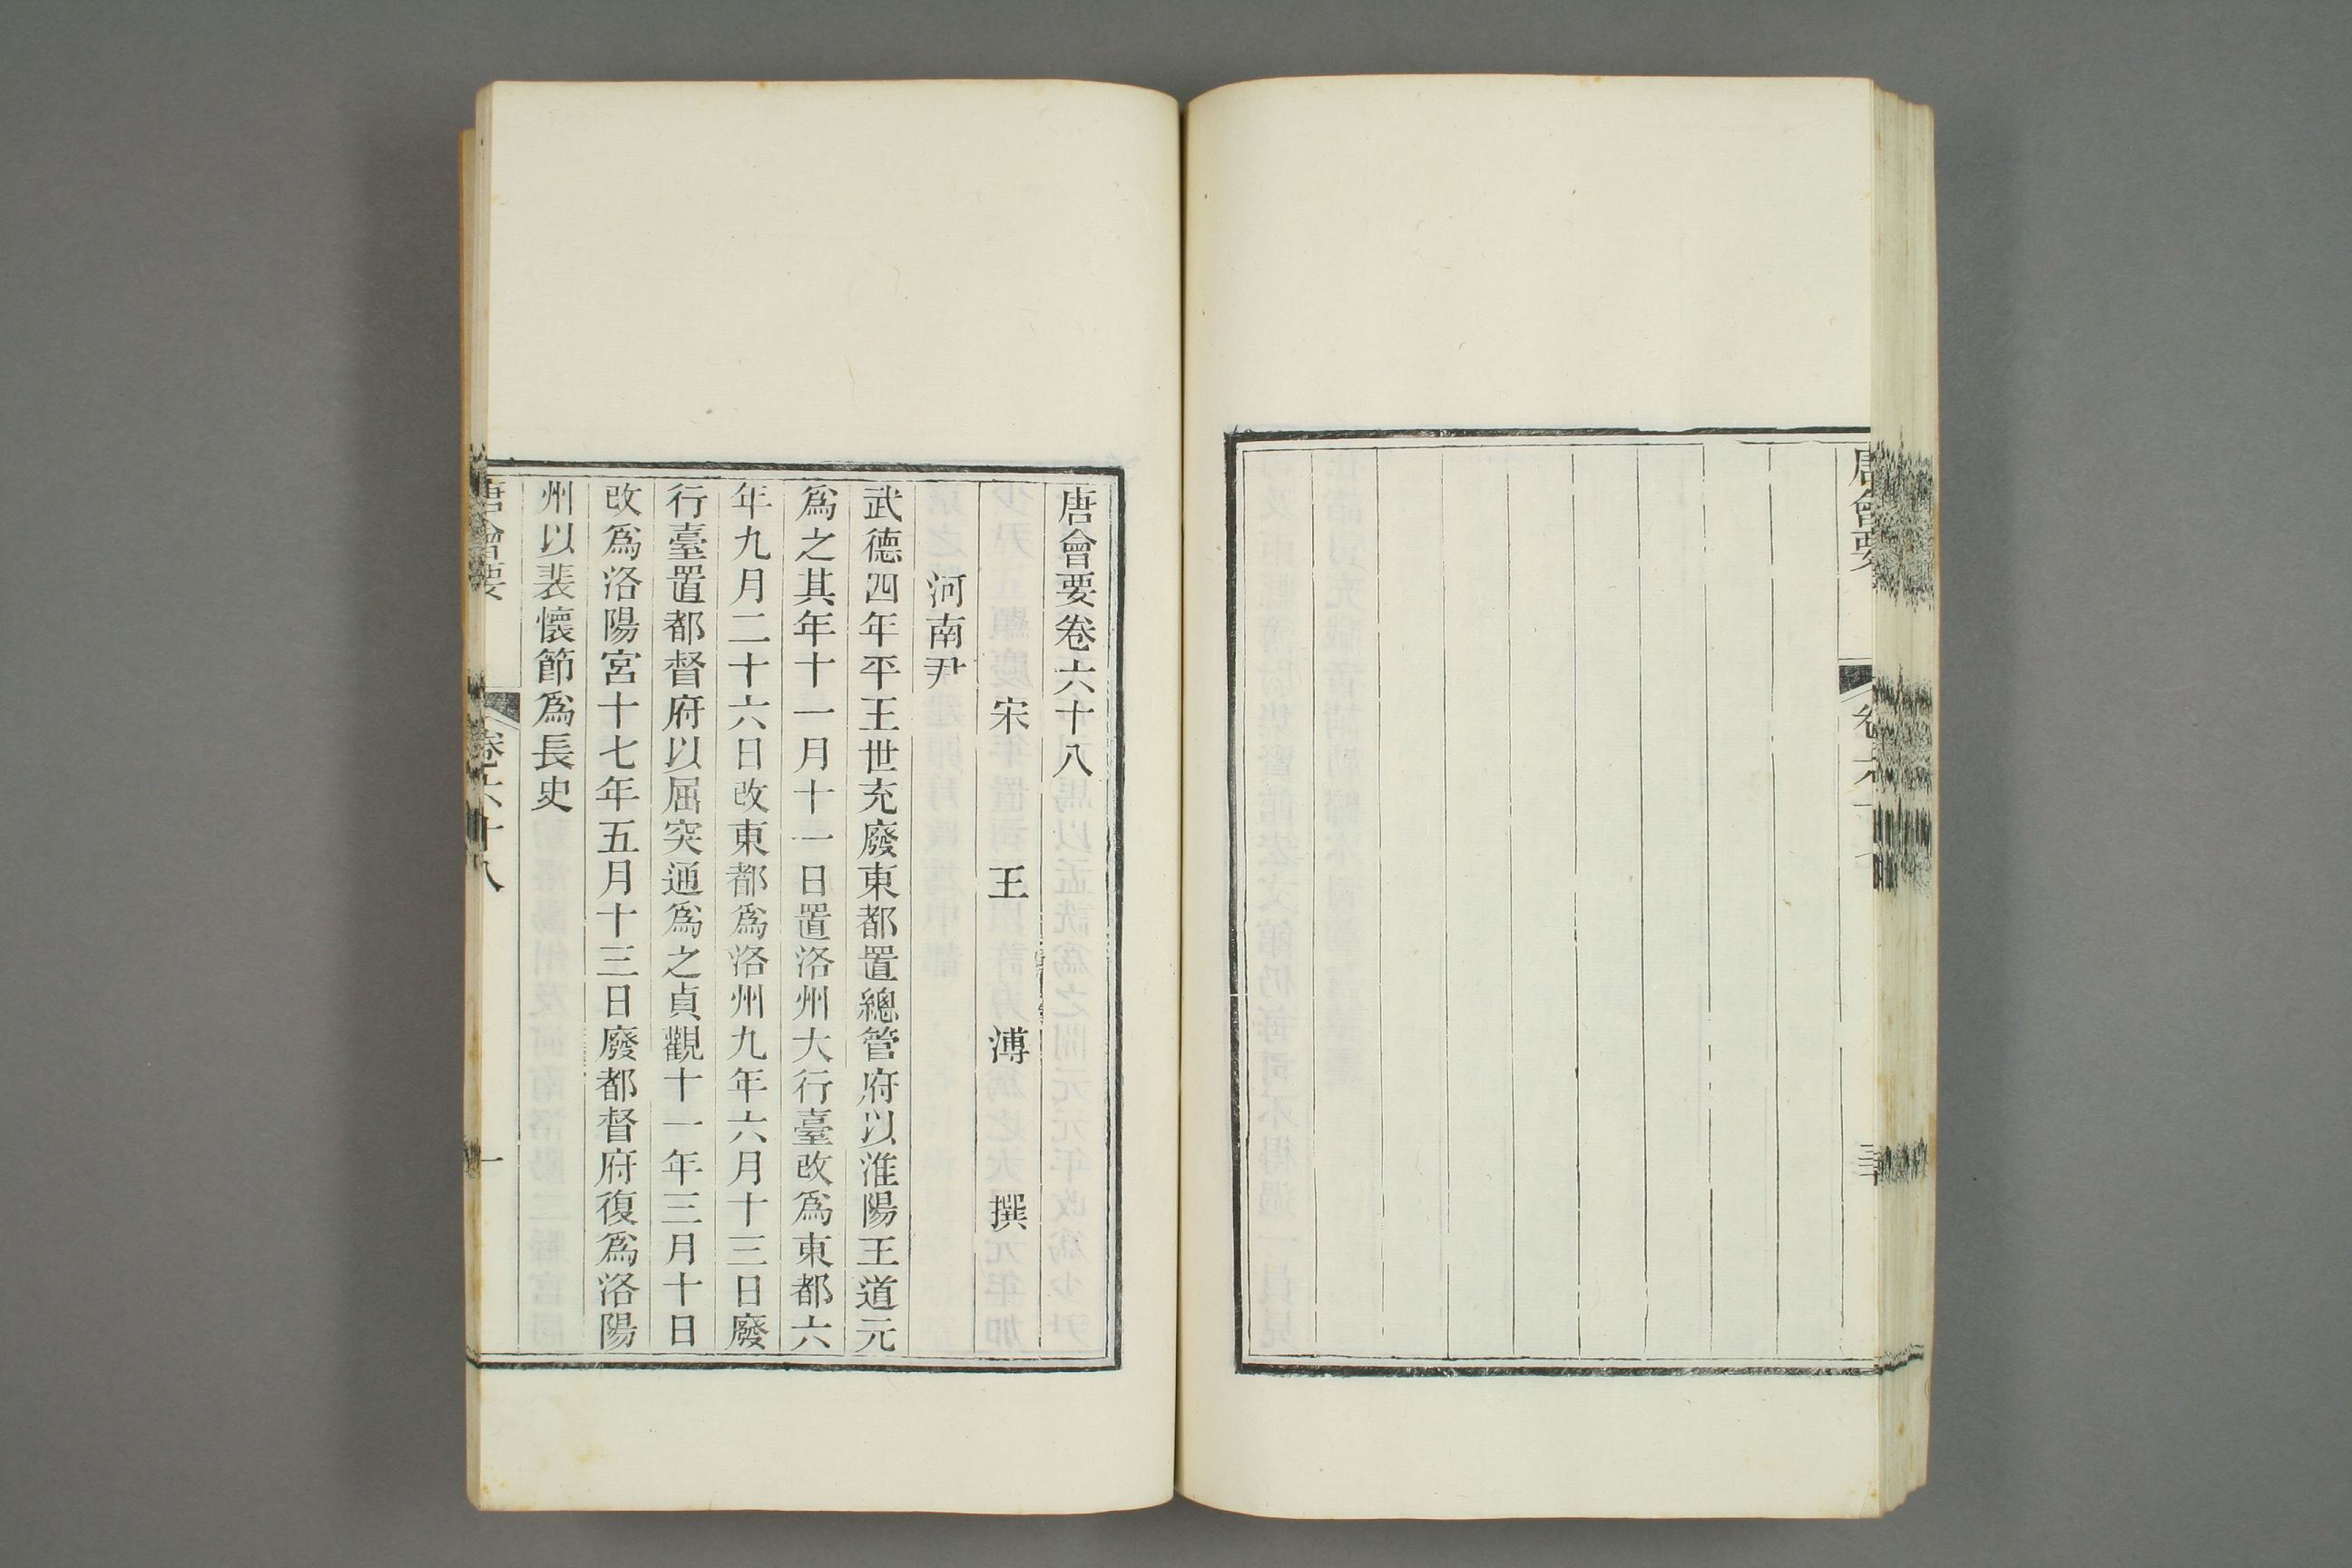 唐會要
唐會要卷六十八
宋 王 溥 撰
河南尹
武德四年平王世充廢東都置總管府以淮陽王道元
爲之其年十一月十一日置洛州大行臺改爲東都六
年九月二十六日改東都爲洛州九年六月十三日廢
行臺置都督府以屈突通爲之貞觀十一年三月十日
改爲洛陽宮十七年五月十三日廢都督府復爲洛陽
州以裴懷節爲長史
唐會要 卷六十八 一